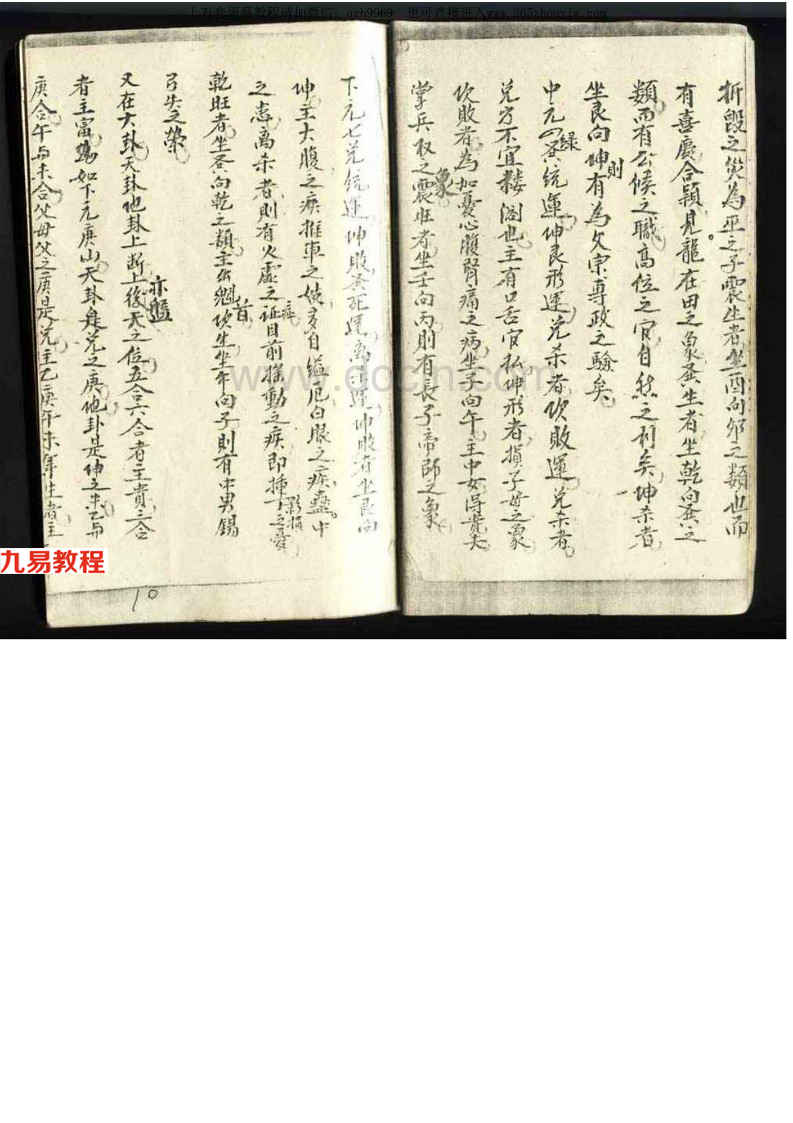 折毀之災為巫之子震生者坐酉向卯之類也而
有喜慶合穎見龍在田之象巽生者坐乾向巽之
類而有公候之職高位之官自然之利矣坤杀者
坐艮向坤則有為欠宗專政之驗矣
中元四绿巽統運坤艮形運兑杀者坎敗運兑杀者
兑方不宜楼阁也主有口舌官私坤形者損子母之象
坎敗者為加憂心腹腎痛之病坐子向午主中女得贵夫
掌兵权之象震旺者坐壬向丙則有長子帝師之象
下元七兑統運坤敗巽死運离運坤敗者坐艮向
坤主大腹之疾推車之自縊厄白眼之疾蠱中
之患离杀者則有火虚之証目前摇動之疾即
乾旺者坐巽向乾之類主出魁首坎生坐午向子則有中男錫
弓矢之榮
又在大卦天卦他卦上断上後天之位五合六合者主贵三合
亦驗
者主富如下元庚山天卦是兑之庚他卦是坤之未乙与
庚合午与未合父母父之庚是兑主乙庚午未年生者主
10
www.docin.com
九易教程